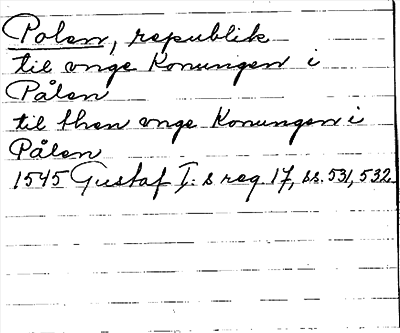 Polen, republik
til vnge Konungen i
Pålen
til then vnge Konungen i
Pålen
1545 Gustaf I:s reg. 17, ss. 531, 532